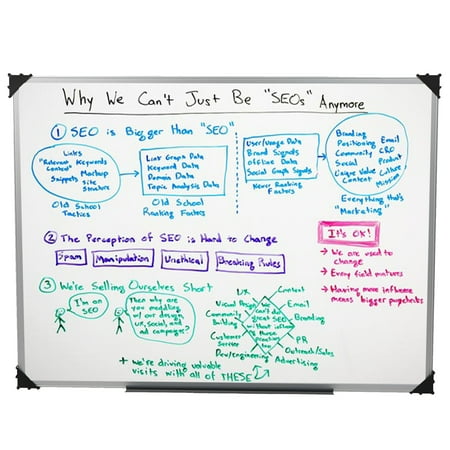 Why We Can't Just Be "SEOs" Anymore
1 SEO is Bigger Than "SEO"
Links
"Relevant" Keywords
Content
Snippets Markup
Site
Structure
Old School
Tactics
Link Graph Data
Keyword Data
Domain Data
Topic Analysis Data
Old School
Ranking Factors
User/Usage Data
Brand Signals
Offline Data
Social Graph Signals
Newer Ranking
Factors
Branding
Positioning Email
Community CRO
Social Product
Unique Value Culture
Content Mission
Everything that's
"Marketing"
2 The Perception of SEO is Hard to Change
Spam Manipulation Unethical Breaking Rules
IT's OK!
→ We are used to
change
→ Every field matures
→ Having more influence
means "bigger paychecks"
3 We're Selling Ourselves Short
I'm an
SEO
Then why are
you meddling
w/ our design,
UX, social, and
ad campaigns?
UX
Content
Visual Design
Email
Community
Building
Branding
Customer
Service
PR
Dev/engineering
Outreach/Sales
Advertising
We
can't do
great SEO
without influencing
these
practices
too
+ we're driving valuable
visits with all of THESE